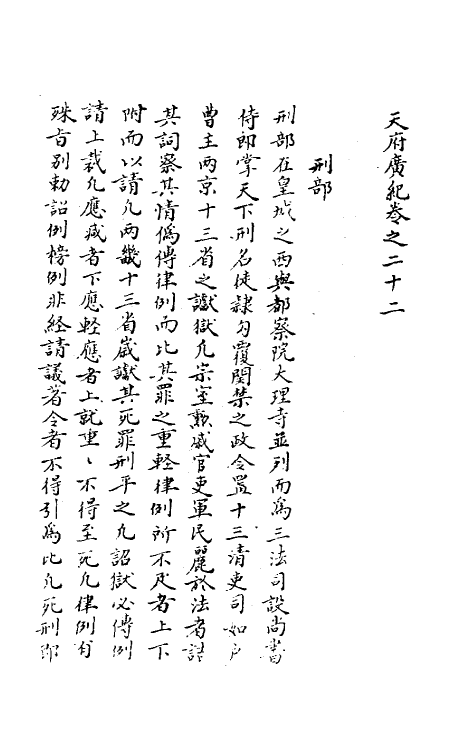 天府廣紀卷之二十二
刑部
刑部在皇城之西與都察院大理寺並列而爲三法司設尚書
侍郎掌天下刑名徒隸勾覆關禁之政令置十三清吏司如户
曹主兩京十三省之讞獄凡宗室勲戚官吏軍民麗於法者詰
其詞察其情僞傅律例而比其罪之重輕律例所不及者上下
附而以請凡兩畿十三省嵗讞其死罪刑平之凡詔獄必傅例
請上裁凡應减者下應輕應者上就重〻不得至死凡律例有
殊旨别勅詔例榜例非經請議著令者不得引爲比凡死刑即